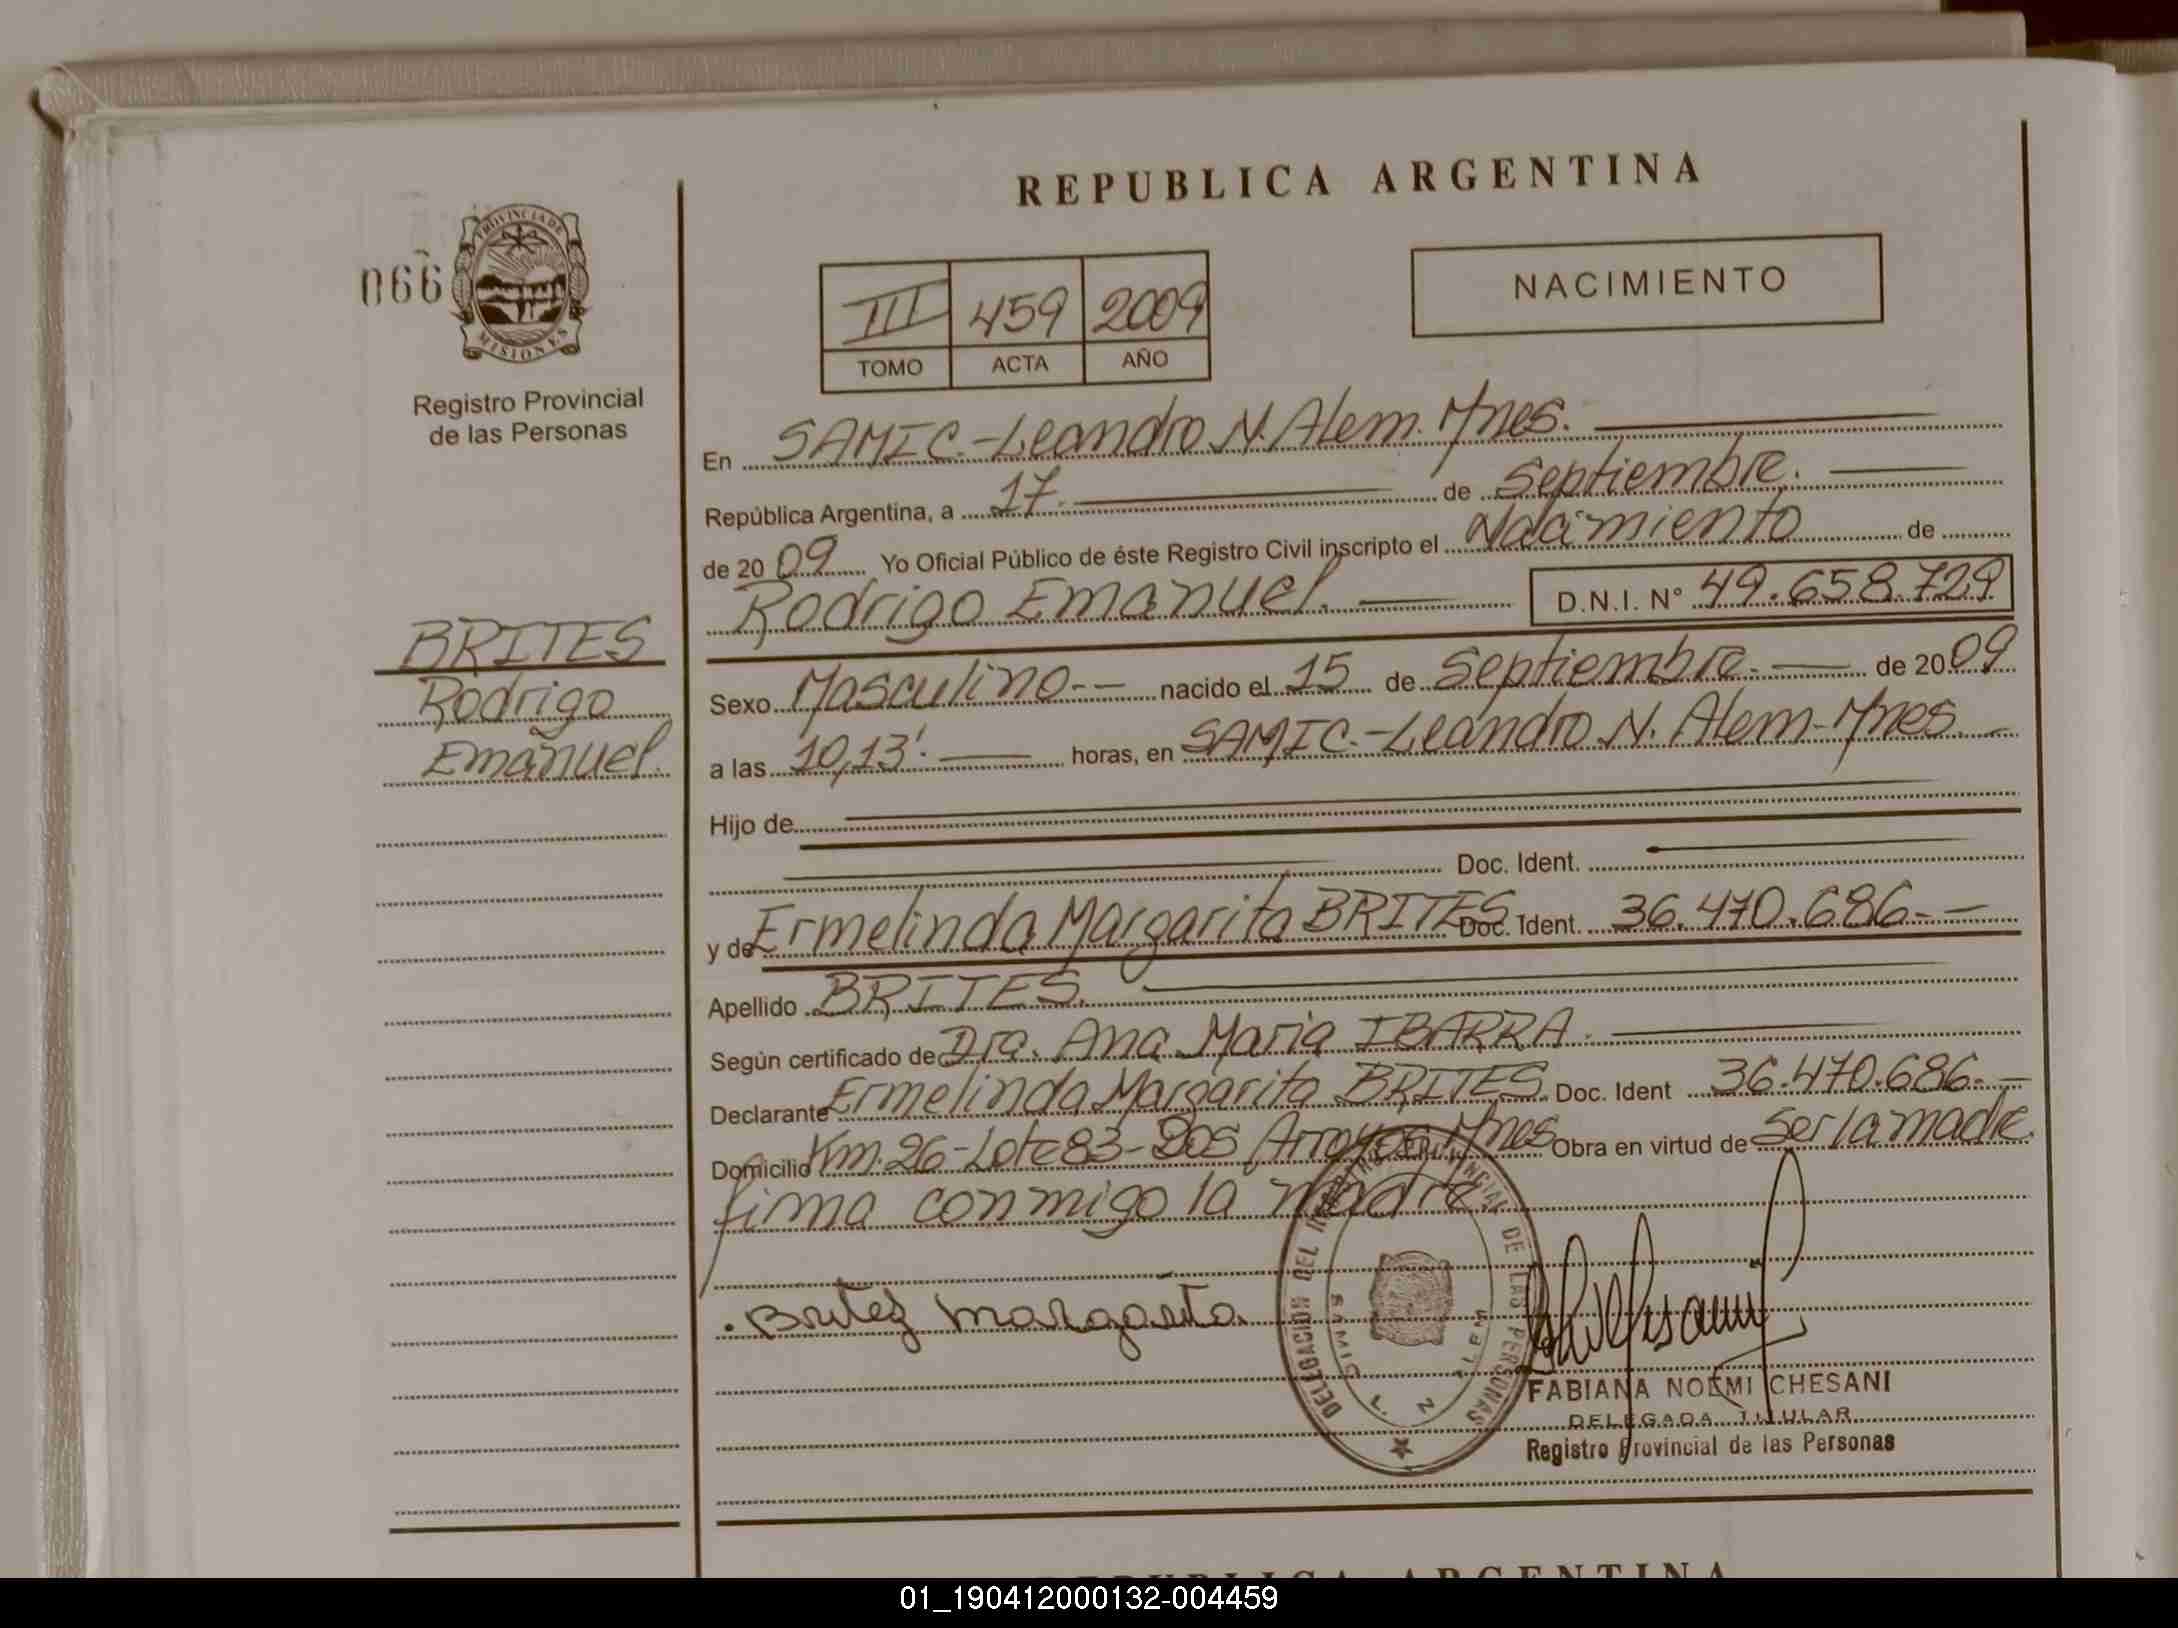 REPUBLICA ARGENTINA
066
PROVINCIA DE
MISIONES
Registro Provincial
de las Personas
III 459 2009
TOMO ACTA AÑO
NACIMIENTO
En SAMIC.-Leandro N. Alem. Mnes.
República Argentina, a 17. de Septiembre.
de 20 09 Yo Oficial Público de éste Registro Civil inscripto el Nacimiento de
Rodrigo Emanuel. D.N.I. N° 49.658.729
BRITES
Rodrigo
Emanuel.
Sexo Masculino-- nacido el 15 de Septiembre. de 20 09
a las 10,13'. horas, en SAMIC.-Leandro N. Alem-Mnes.
Hijo de
Doc. Ident.
y de Ermelinda Margarita BRITES Doc. Ident. 36.470.686--
Apellido BRITES.
Según certificado de Dra. Ana Maria IBARRA.
Declarante Ermelinda Margarita BRITES Doc. Ident 36.470.686.-
Domicilio Km 26-Lote 83-Dos Arroyos Mnes Obra en virtud de Ser la madre.
firma conmigo la madre
. Britez margarita.
DELEGACIÓN DEL REGISTRO PROVINCIAL DE LAS PERSONAS
SAMIC L. N. ALEM
FABIANA NOEMI CHESANI
DELEGADA TITULAR
Registro Provincial de las Personas
REPUBLICA ARGENTINA
01_190412000132-004459